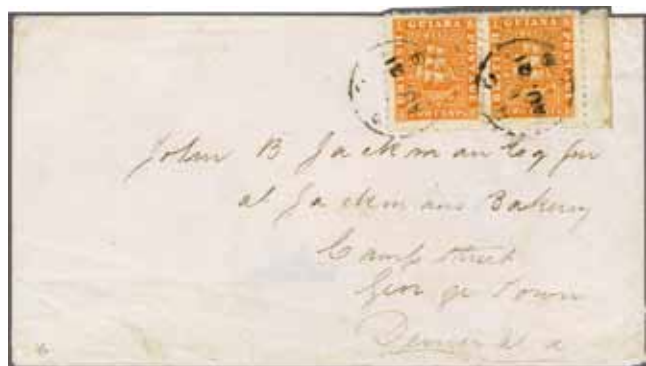 GUIANA GUIANA
John B Jackman Esq Jnr
at Jackmans Bakery
Camp Street
George Town
Demerara